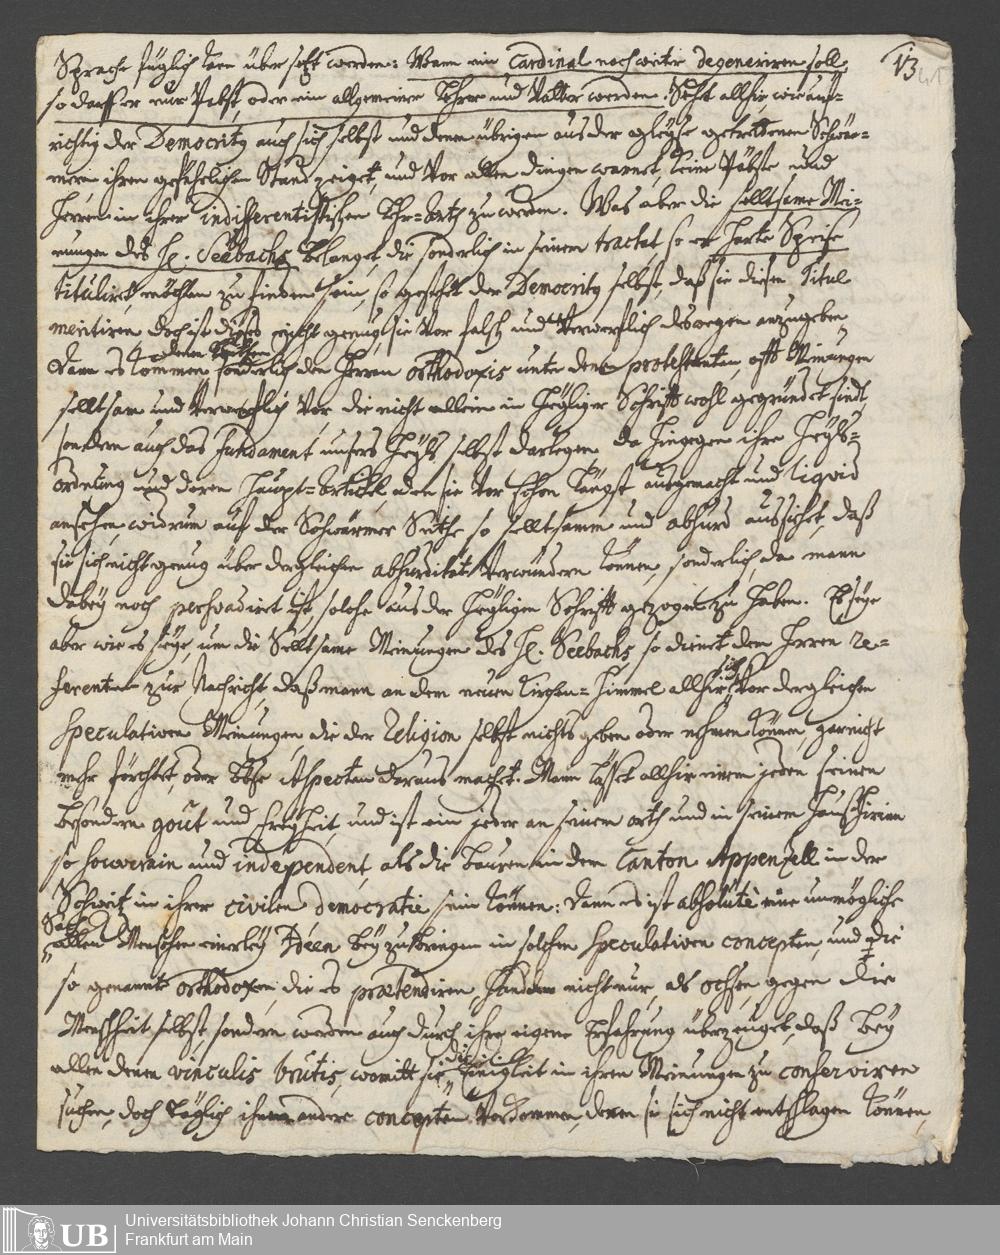 13
41
Sprache füglich kan übersetzt werden: Wann ein Cardinal noch weiter degeneriren soll,
so darff er nur Pabst, oder ein allgemeiner Lehrer und Vatter werden. Seht allhir wie auf-
richtig der Democrity auch sich selbst und denen übrigen aus der gleyse getrettenen Schwär-
mern ihren gefährlichen Stand zeiget, und vor allen dingen warnet, keine Päbste und
Herren in ihrer indifferentistischen Lehr-Arth zu werden. Was aber die selltsame Mei-
nungen des H. Seebachs belanget, die sonderlich in seinem tractat, so er harte Speise
tituliret, möchten zu finden sein, so gestehet der Democrity selbst, daß sie diesen Titul
meritiren, doch ist dieses nicht genug, sie vor falsch und verwerfflich deswegen anzugeben,
Dann es kommen sonderlich den Herren orthodoxis unter denen protestanten, offt Meinungen
selltsam und verwerfflich vor, die nicht allein in Heyliger Schrifft wohl gegründet sindt
sondern auch das Fundament unsers Heyls selbst darlegen. Da hingegen ihre Heyls-
ordnung und deren Haupt-Artickel, den sie vor schon längst ausgemacht und liqvid
ansehen, widrum auf der Schwärmer Seithe so selltsamm und absurd aussichet, daß
sie sich nicht genug über dergleichen absurditet verwundern können, sonderlich da mann
dabey noch persvadiret ist, solche aus der Heyligen Schrifft gezogen zu haben. Es seye
aber wie es seye, um die Selltsame Meinungen des H. Seebachs so dienet dem Herren re-
ferenten zur Nachricht, daß mann an dem neuen Kirchen-Himmel allhir sich vor dergleichen
speculativen Meinungen, die der Religion selbst nichts geben oder nehmen können, gar nicht
mehr förchtet, oder böse Aspecten daraus machet. Mann lässet allhir einem jeden seinen
besondern goût und Freyheit, und ist ein jeder an seinem orth und in seinem Haus hirinn
so souverain und independent, als die bauren in dem Canton Appenzell in der
Schweitz in ihrer civilen democratie sein können: Dann es ist absolúte eine unmögliche
Sach allen Menschen einerley Ideen beyzubringen in solchen speculativen concepten, und die
so genannte orthodoxen, die es prætendiren, handeln nicht nur, als ochsen, gegen die
Menschheit selbst, sondern werden auch durch ihre eigene Erfahrung überzeuget, daß bey
allen denen vinculis brutis, womitt sie die Einigkeit in ihren Meinungen zu conserviren
suchen, doch täglich ihnen andere concepten vorkommen, deren sie sich nicht entschlagen können,
UB
Universitätsbibliothek Johann Christian Senckenberg
Frankfurt am Main